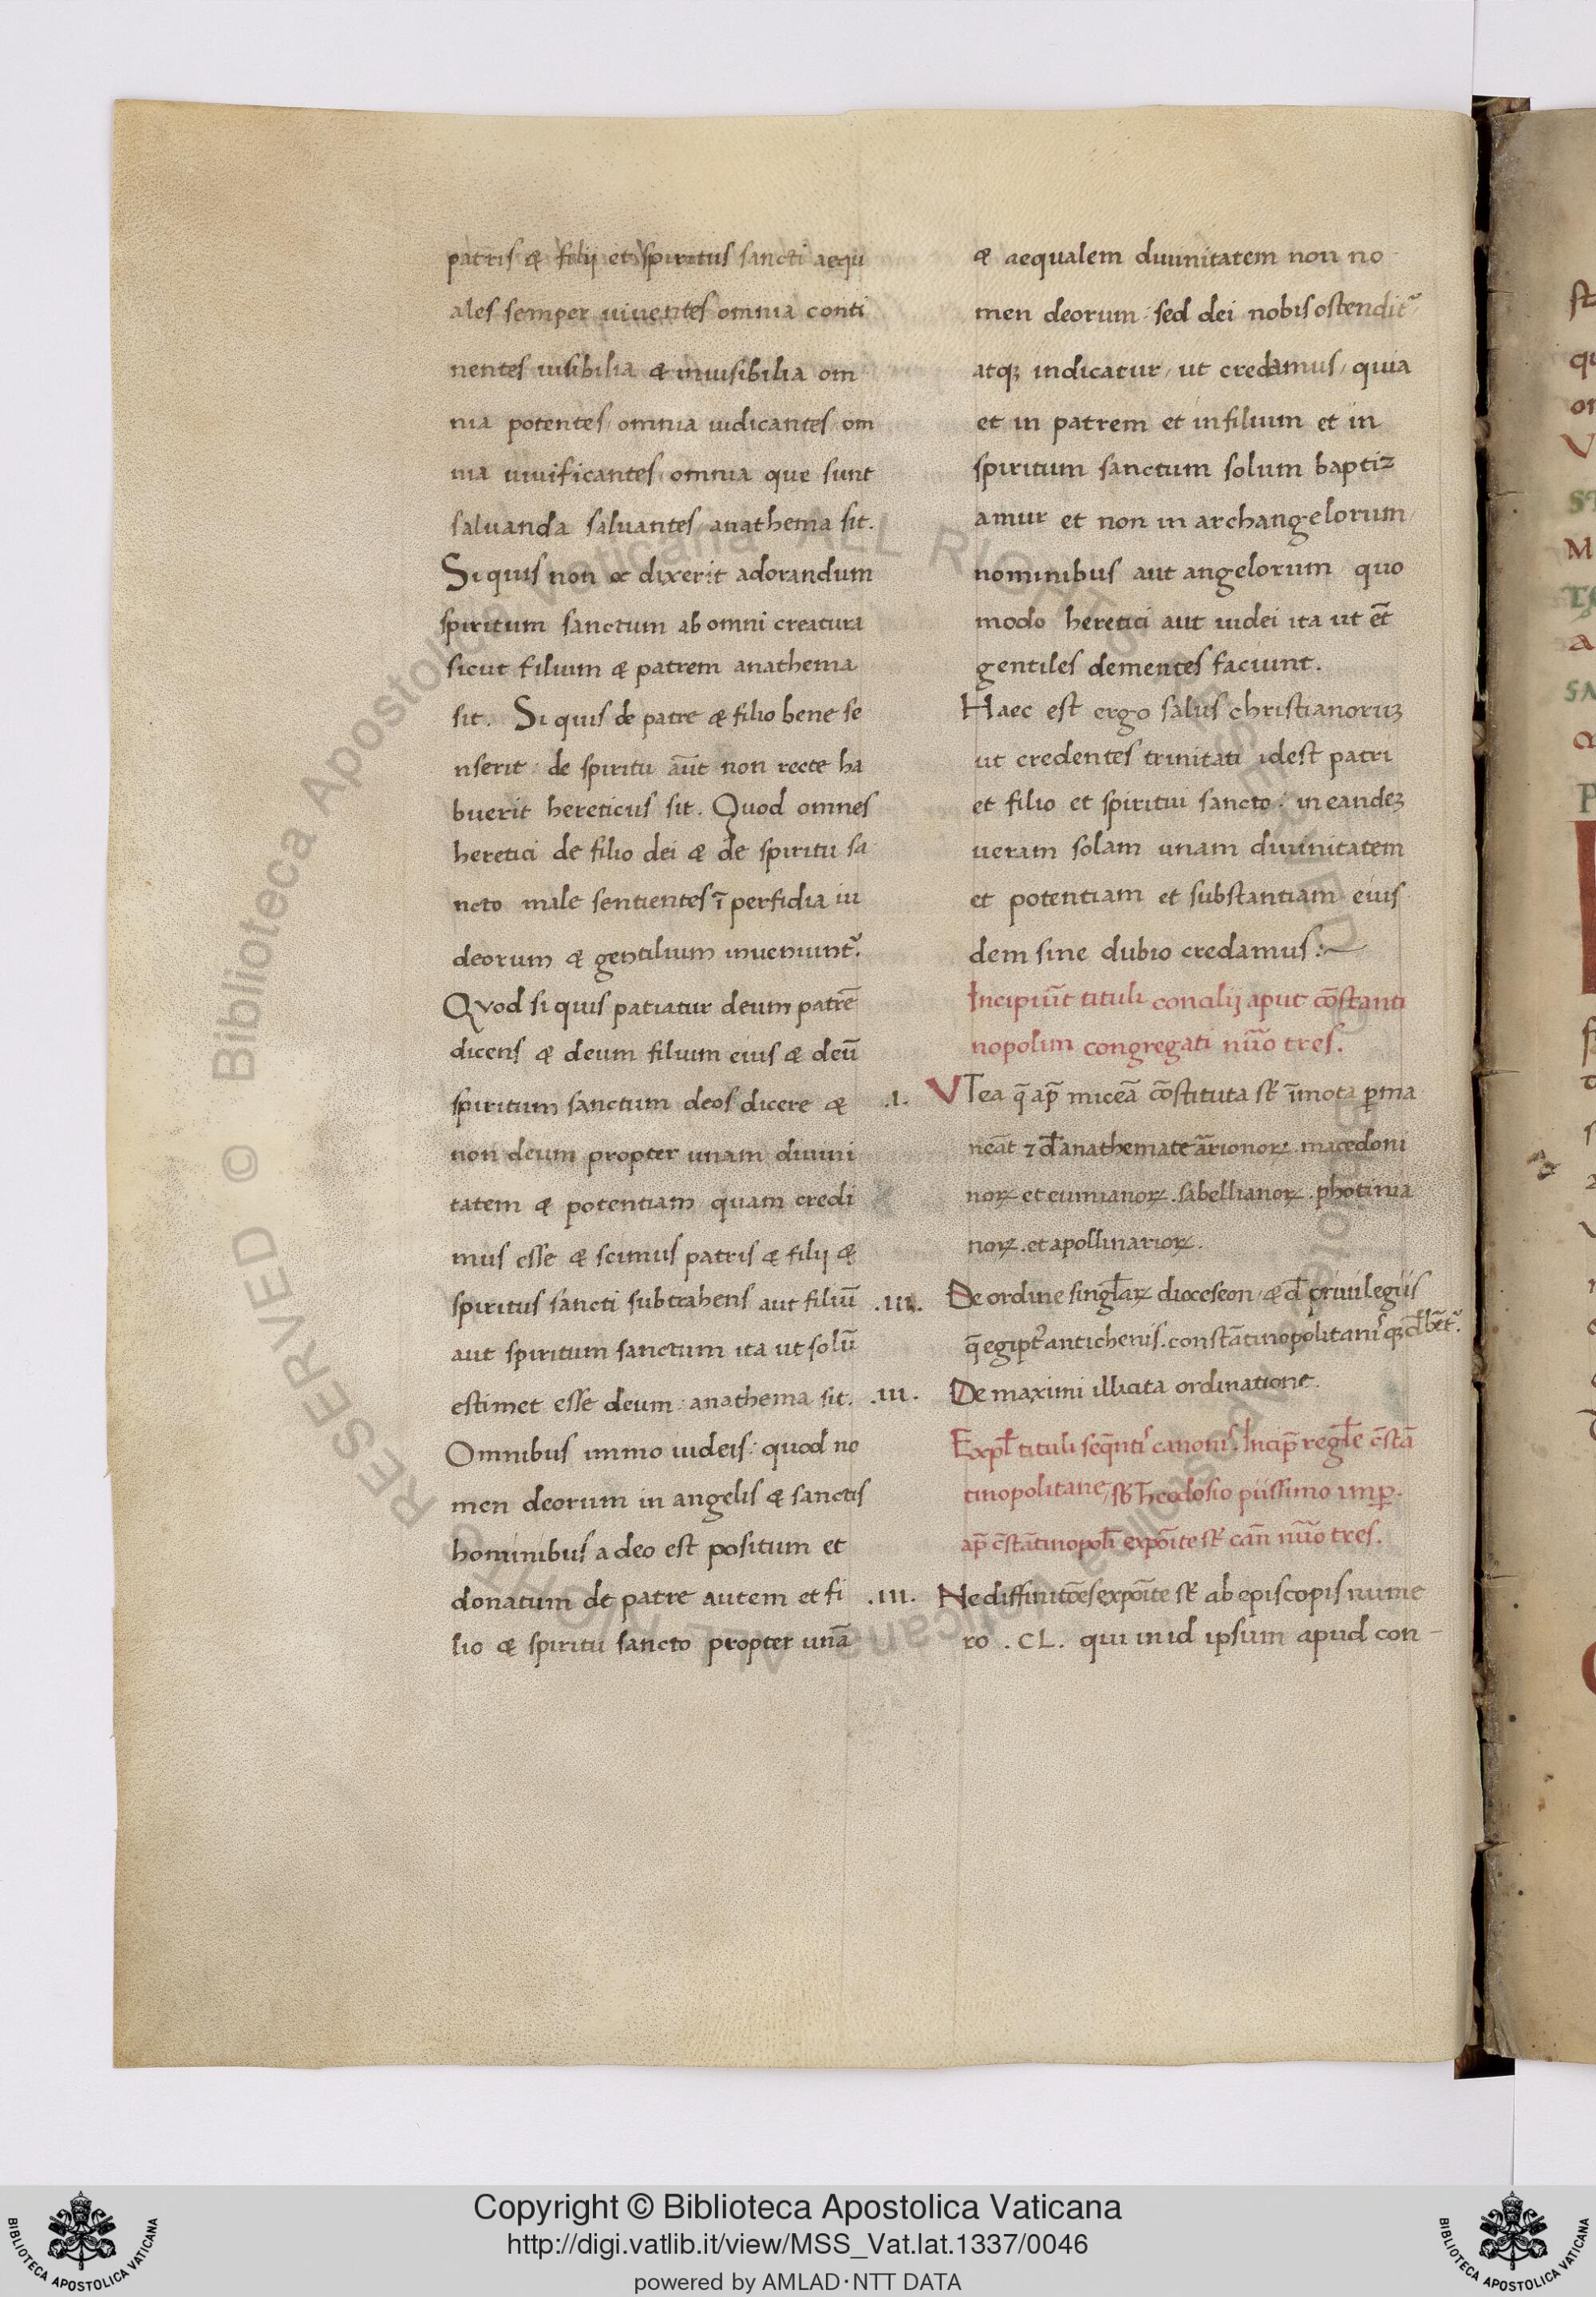 patris & filij et spiritus sancti aequ
ales semper uiuentes omnia conti
nentes uisibilia & inuisibilia om
nia potentes omnia iudicantes om
nia uiuificantes omnia que sunt
saluanda saluantes anathema sit.
Si quis non dixerit adorandum
spiritum sanctum ab omni creatura
sicut filium & patrem anathema
sit. Si quis de patre & filio bene se
nserit de spiritu aūt non recte ha
buerit hereticus sit. Quod omnes
heretici de filio dei & de spiritu sa
ncto male sentientes ī perfidia iu
deorum & gentilium inueniunt᷑.
Quod si quis patiatur deum patrē
dicens & deum filium eius & deū
spiritum sanctum deos dicere &
non deum propter unam diuini
tatem & potentiam quam credi
mus esse & scimus patris & filij &
spiritus sancti subtrahens aut filiū
aut spiritum sanctum ita ut solū
estimet esse deum: anathema sit.
Omnibus immo iudeis: quod no
men deorum in angelis & sanctis
hominibus a deo est positum et
donatum de patre autem et fi
lio & spiritu sancto propter unā
& aequalem diuinitatem non no
men deorum sed dei nobis ostendit᷑
atqꝫ indicatur, ut credamus, quia
et in patrem et in filium et in
spiritum sanctum solum baptiz
amur et non in archangelorum
nominibus aut angelorum quo
modo heretici aut iudei ita ut et̄
gentiles dementes faciunt.
Haec est ergo salus christianoruꝫ
ut credentes trinitati idest patri
et filio et spiritui sancto: in eandeꝫ
ueram solam unam diuinitatem
et potentiam et substantiam eius
dem sine dubio credamus:~
Incipiūt tituli concilij aput cōstanti
nopolim congregati nūo tres.
.I. VT ea q̄ ap̄ niceā cōstituta st̄ īmota ꝑma
neāt ⁊ đ anathemate ārionoꝝ. macedoni
noꝝ et eumianoꝝ. sabellianoꝝ. photinia
noꝝ. et apollinarioꝝ.
.II. De ordine singl̄aꝝ dioceseon, & đ priuilegiis
q̄ egipt᷑ antichenis. constātinopolitanis qꝫ
.III. De maximi illicita ordinatione.
Expl̄ tituli seq̄nti canonis. Incip̄ regl̄e c̄stā
tinopolitane, sƀ Theodosio piissimo imꝑ.
ap̄ c̄stātinopolī expōite st̄ cān nūo tres.
.III. Ne diffinitōes expōite st̄ ab episcopis nume
ro . CL. qui in id ipsum apud con-
Copyright © Biblioteca Apostolica Vaticana
http://digi.vatlib.it/view/MSS_Vat.lat.1337/0046
powered by AMLAD·NTT DATA
BIBLIOTECA APOSTOLICA VATICANA
BIBLIOTECA APOSTOLICA VATICANA